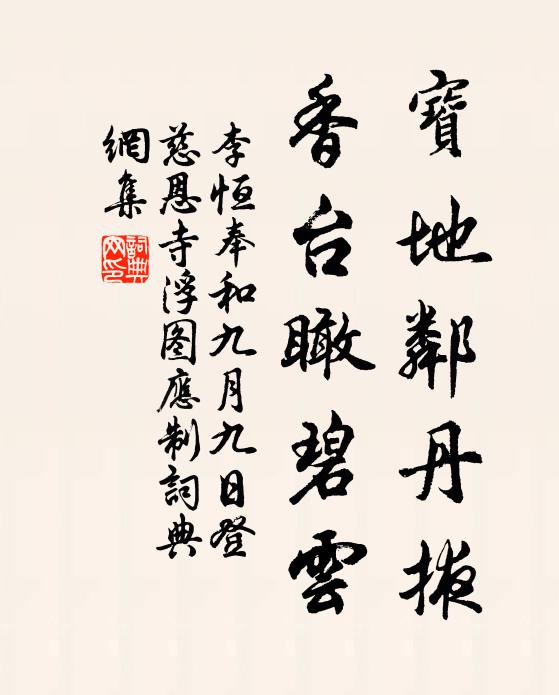 寶地鄰丹掖
香台瞰碧雲
李恒奉和九月九日登
慈恩寺浮图應制詞典
網集
詞典網印